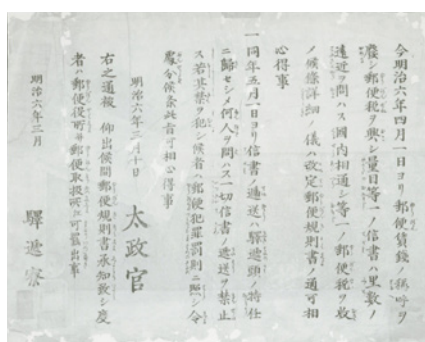 今明治六年四月一日ヨリ郵便賃錢ノ稱呼ヲ
廢シ郵便税ヲ興シ量目等一ノ信書ハ里數ノ
遠近ヲ問ハス國内相通シ等一ノ郵便税ヲ收
メ候條詳細ノ儀ハ改定郵便規則書ノ通可相
心得事
一同年五月一日ヨリ信書ノ遞送ハ驛遞頭ノ特任
ニ歸セシメ何人ヲ問ハス一切信書ノ遞送ヲ禁止
ス若其禁ヲ犯シ候者ハ郵便犯罪罰則ニ照シ令
處分候條此旨可相心得事
明治六年三月十日
太政官
右之通被 仰出候間郵便規則書承知致シ度
者ハ郵便役所并郵便取扱所江可罷出事
明治六年三月
驛遞寮